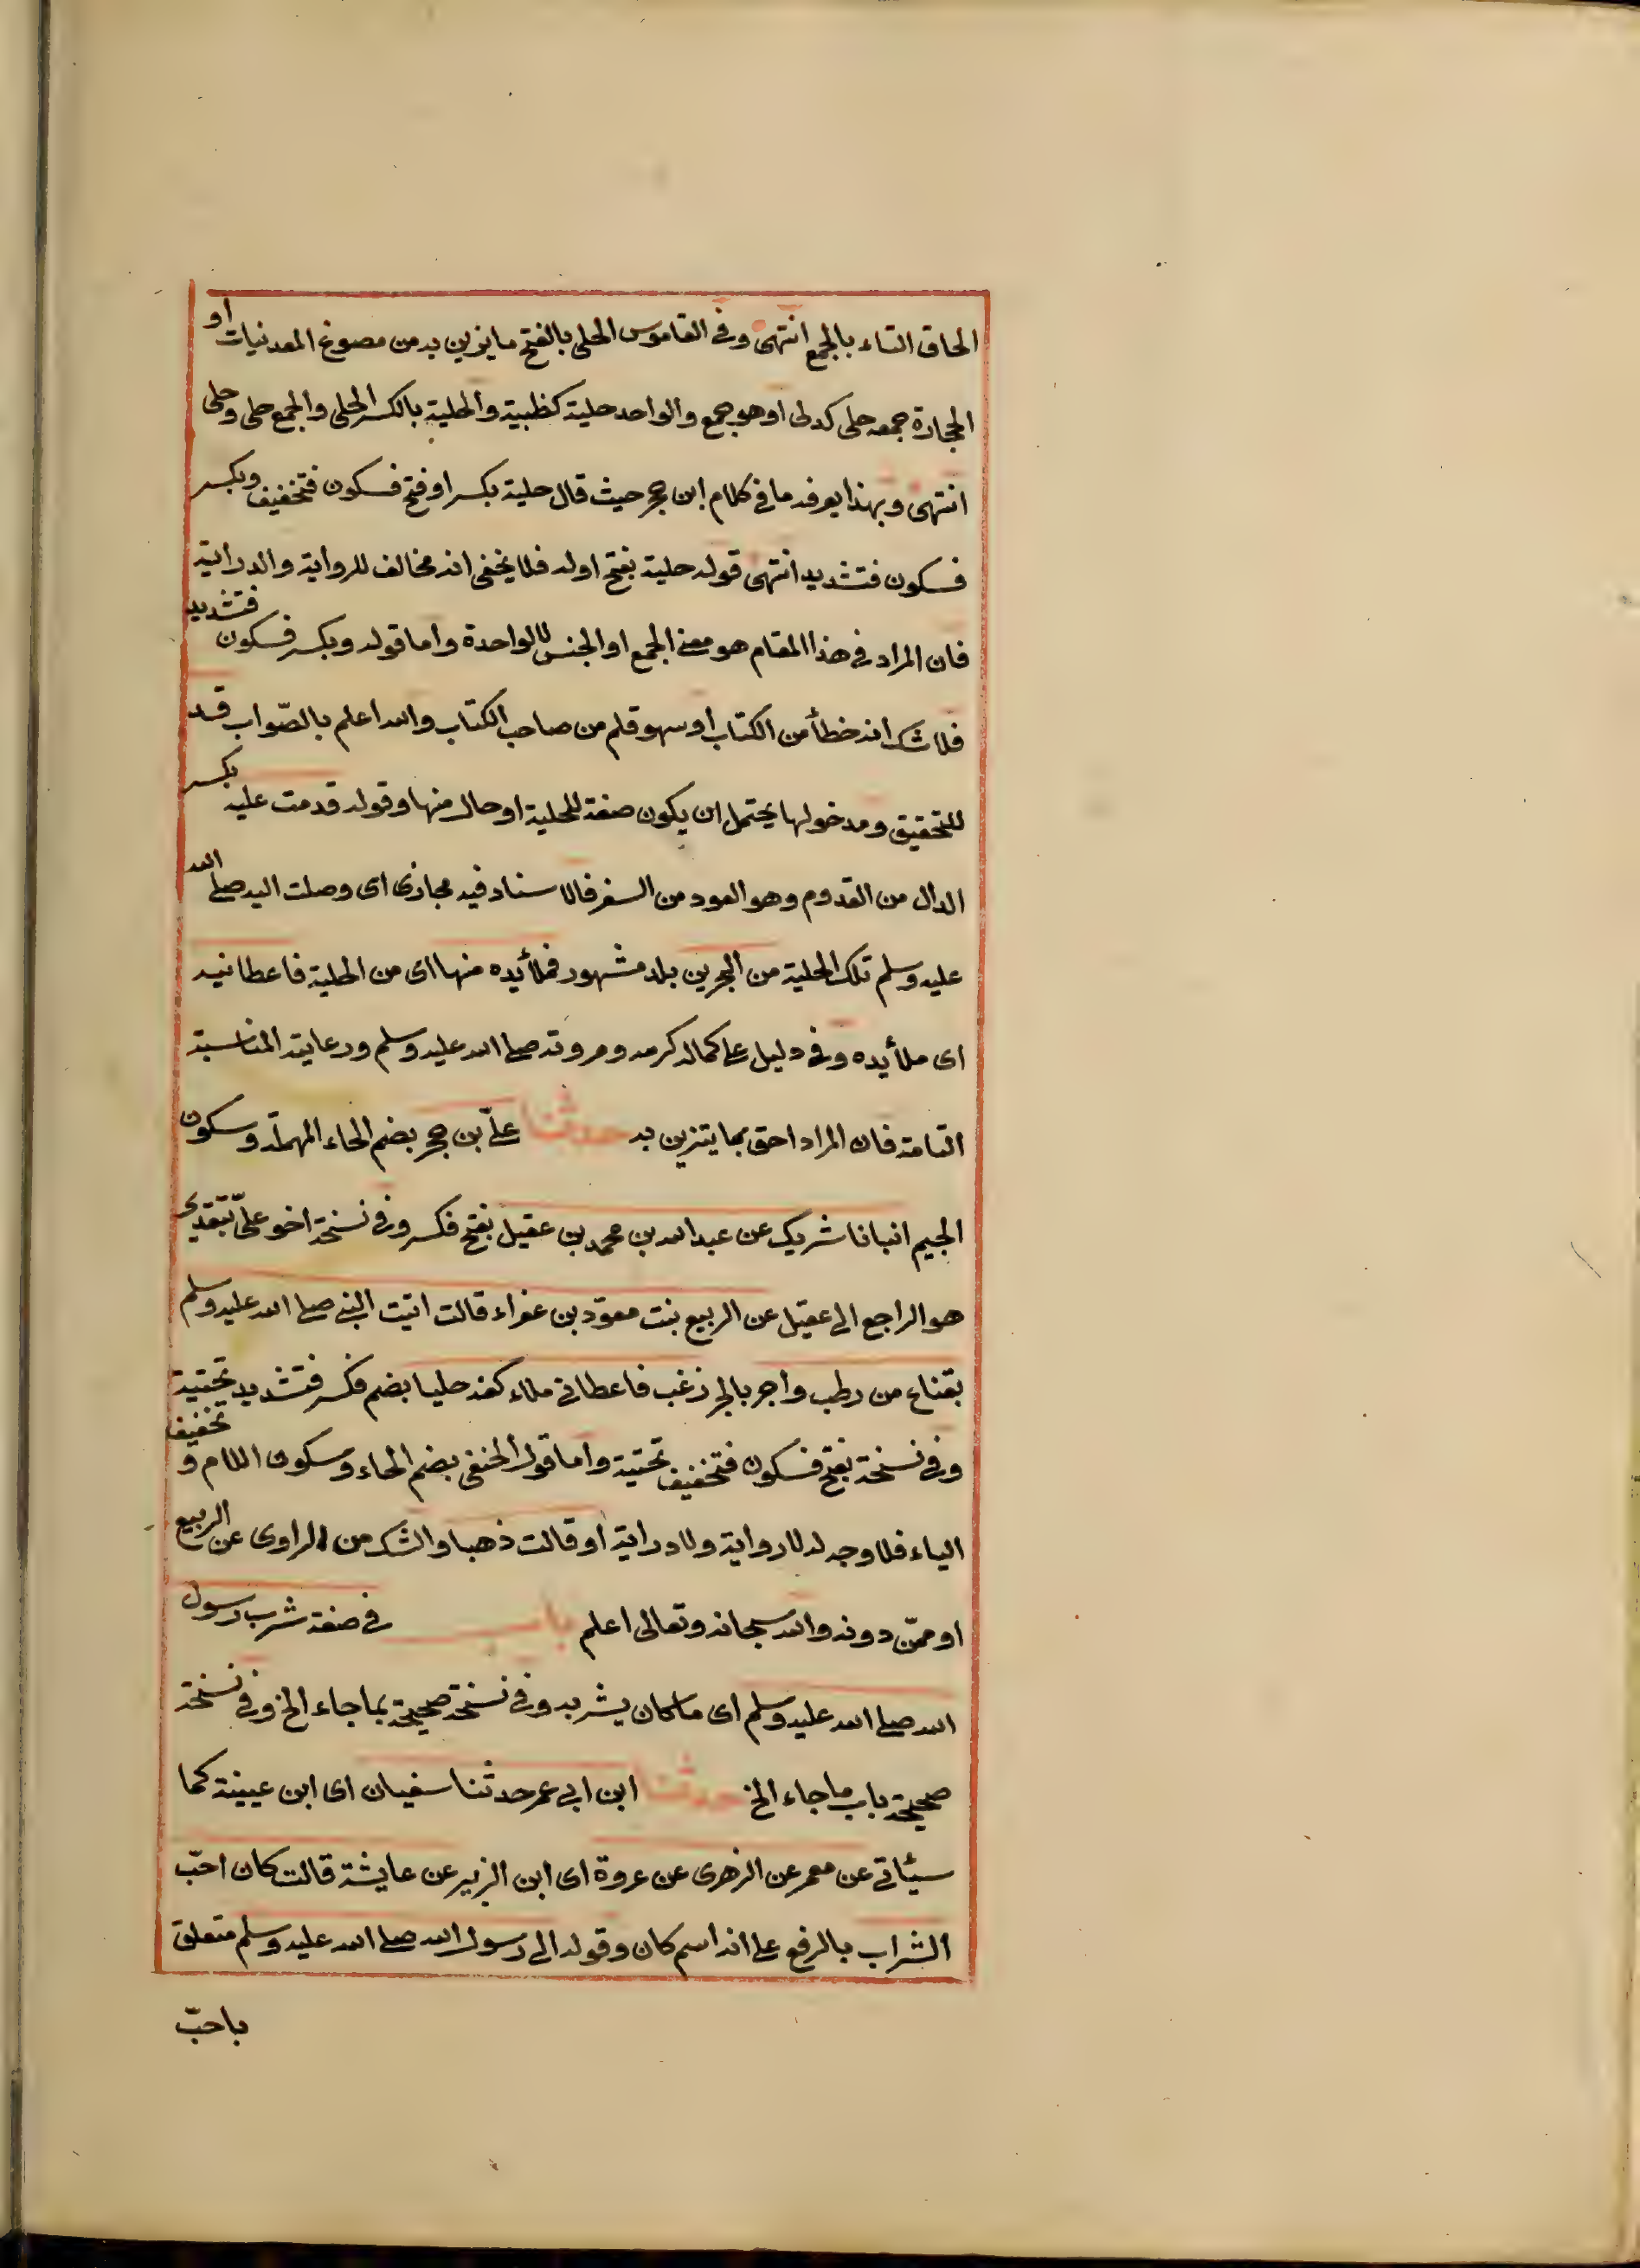 الحاق التاء بالجمع انتهى وفى القاموس الحلى بالفتح ما يزين به من مصوغ المعدنيات او
الحجارة جمعه حلى كدلى او هو جمع والواحد حلية كظبية والحلية بالكسر الحلى والجمع حلى وحلى
انتهى وبهذا يعرف ما فى كلام ابن حجر حيث قال حلية بكسر او فتح فسكون فتخفيف وبكسر
فسكون فتشديد انتهى قوله حلية بفتح اوله فلا يخفى انه مخالف للرواية والدراية
فان المراد فى هذا المقام هو معنى الجمع او الجنس لا الواحدة واما قوله وبكسر فسكون فتشديد
فلا شك انه خطأ من الكتاب او سهو قلم من صاحب الكتاب والله اعلم بالصّواب قد
للتحقيق ومدخولها يحتمل ان يكون صفة للحلية او حال منها وقوله قدمت عليه بكسر
الدال من القدوم وهو العود من السفر فالاسناد فيه مجازى اى وصلت اليه صلى الله
عليه وسلم تلك الحلية من البحرين بلد مشهور فملأ يده منها اى من الحلية فاعطانيه
اى ملأ يده وفى دليل على كمال كرمه ومروته صلى الله عليه وسلم ورعاية المناسبة
التامة فان المراد احق بما يتزين به حدثنا علىّ بن حجر بضم الحاء المهملة وسكون
الجيم انبانا شريك عن عبد الله بن محمد بن عقيل بفتح فكسر وفى نسخة اخو علىّ بتقدير
هو الراجع الى عقيل عن الربيع بنت معوّذ بن عفراء قالت اتيت النبى صلى الله عليه وسلم
بقناع من رطب واجر بالجر زغب فاعطانى ملاء كفه حليا بضم فكسر فتشديد تحتية
وفى نسخة بفتح فسكون فتخفيف تحتية واما قول الحنفى بضم الحاء وسكون اللام وتخفيف
الياء فلا وجه له لا رواية ولا دراية او قالت ذهبا والشك من الراوى عن الربيع
او ممّن دونه والله سبحانه وتعالى اعلم باب فى صفة شرب رسول
الله صلى الله عليه وسلم اى ما كان يشربه وفى نسخة صحيحة بما جاء الخ وفى نسخة
صحيحة باب ما جاء الخ حدثنا ابن ابى عمر حدثنا سفيان اى ابن عيينة كما
سيئاتى عن معمر عن الزهرى عن عروة اى ابن الزبير عن عايشة قالت كان احبّ
الشراب بالرفع على انه اسم كان وقوله الى رسول الله صلى الله عليه وسلم متعلق
باحبّ